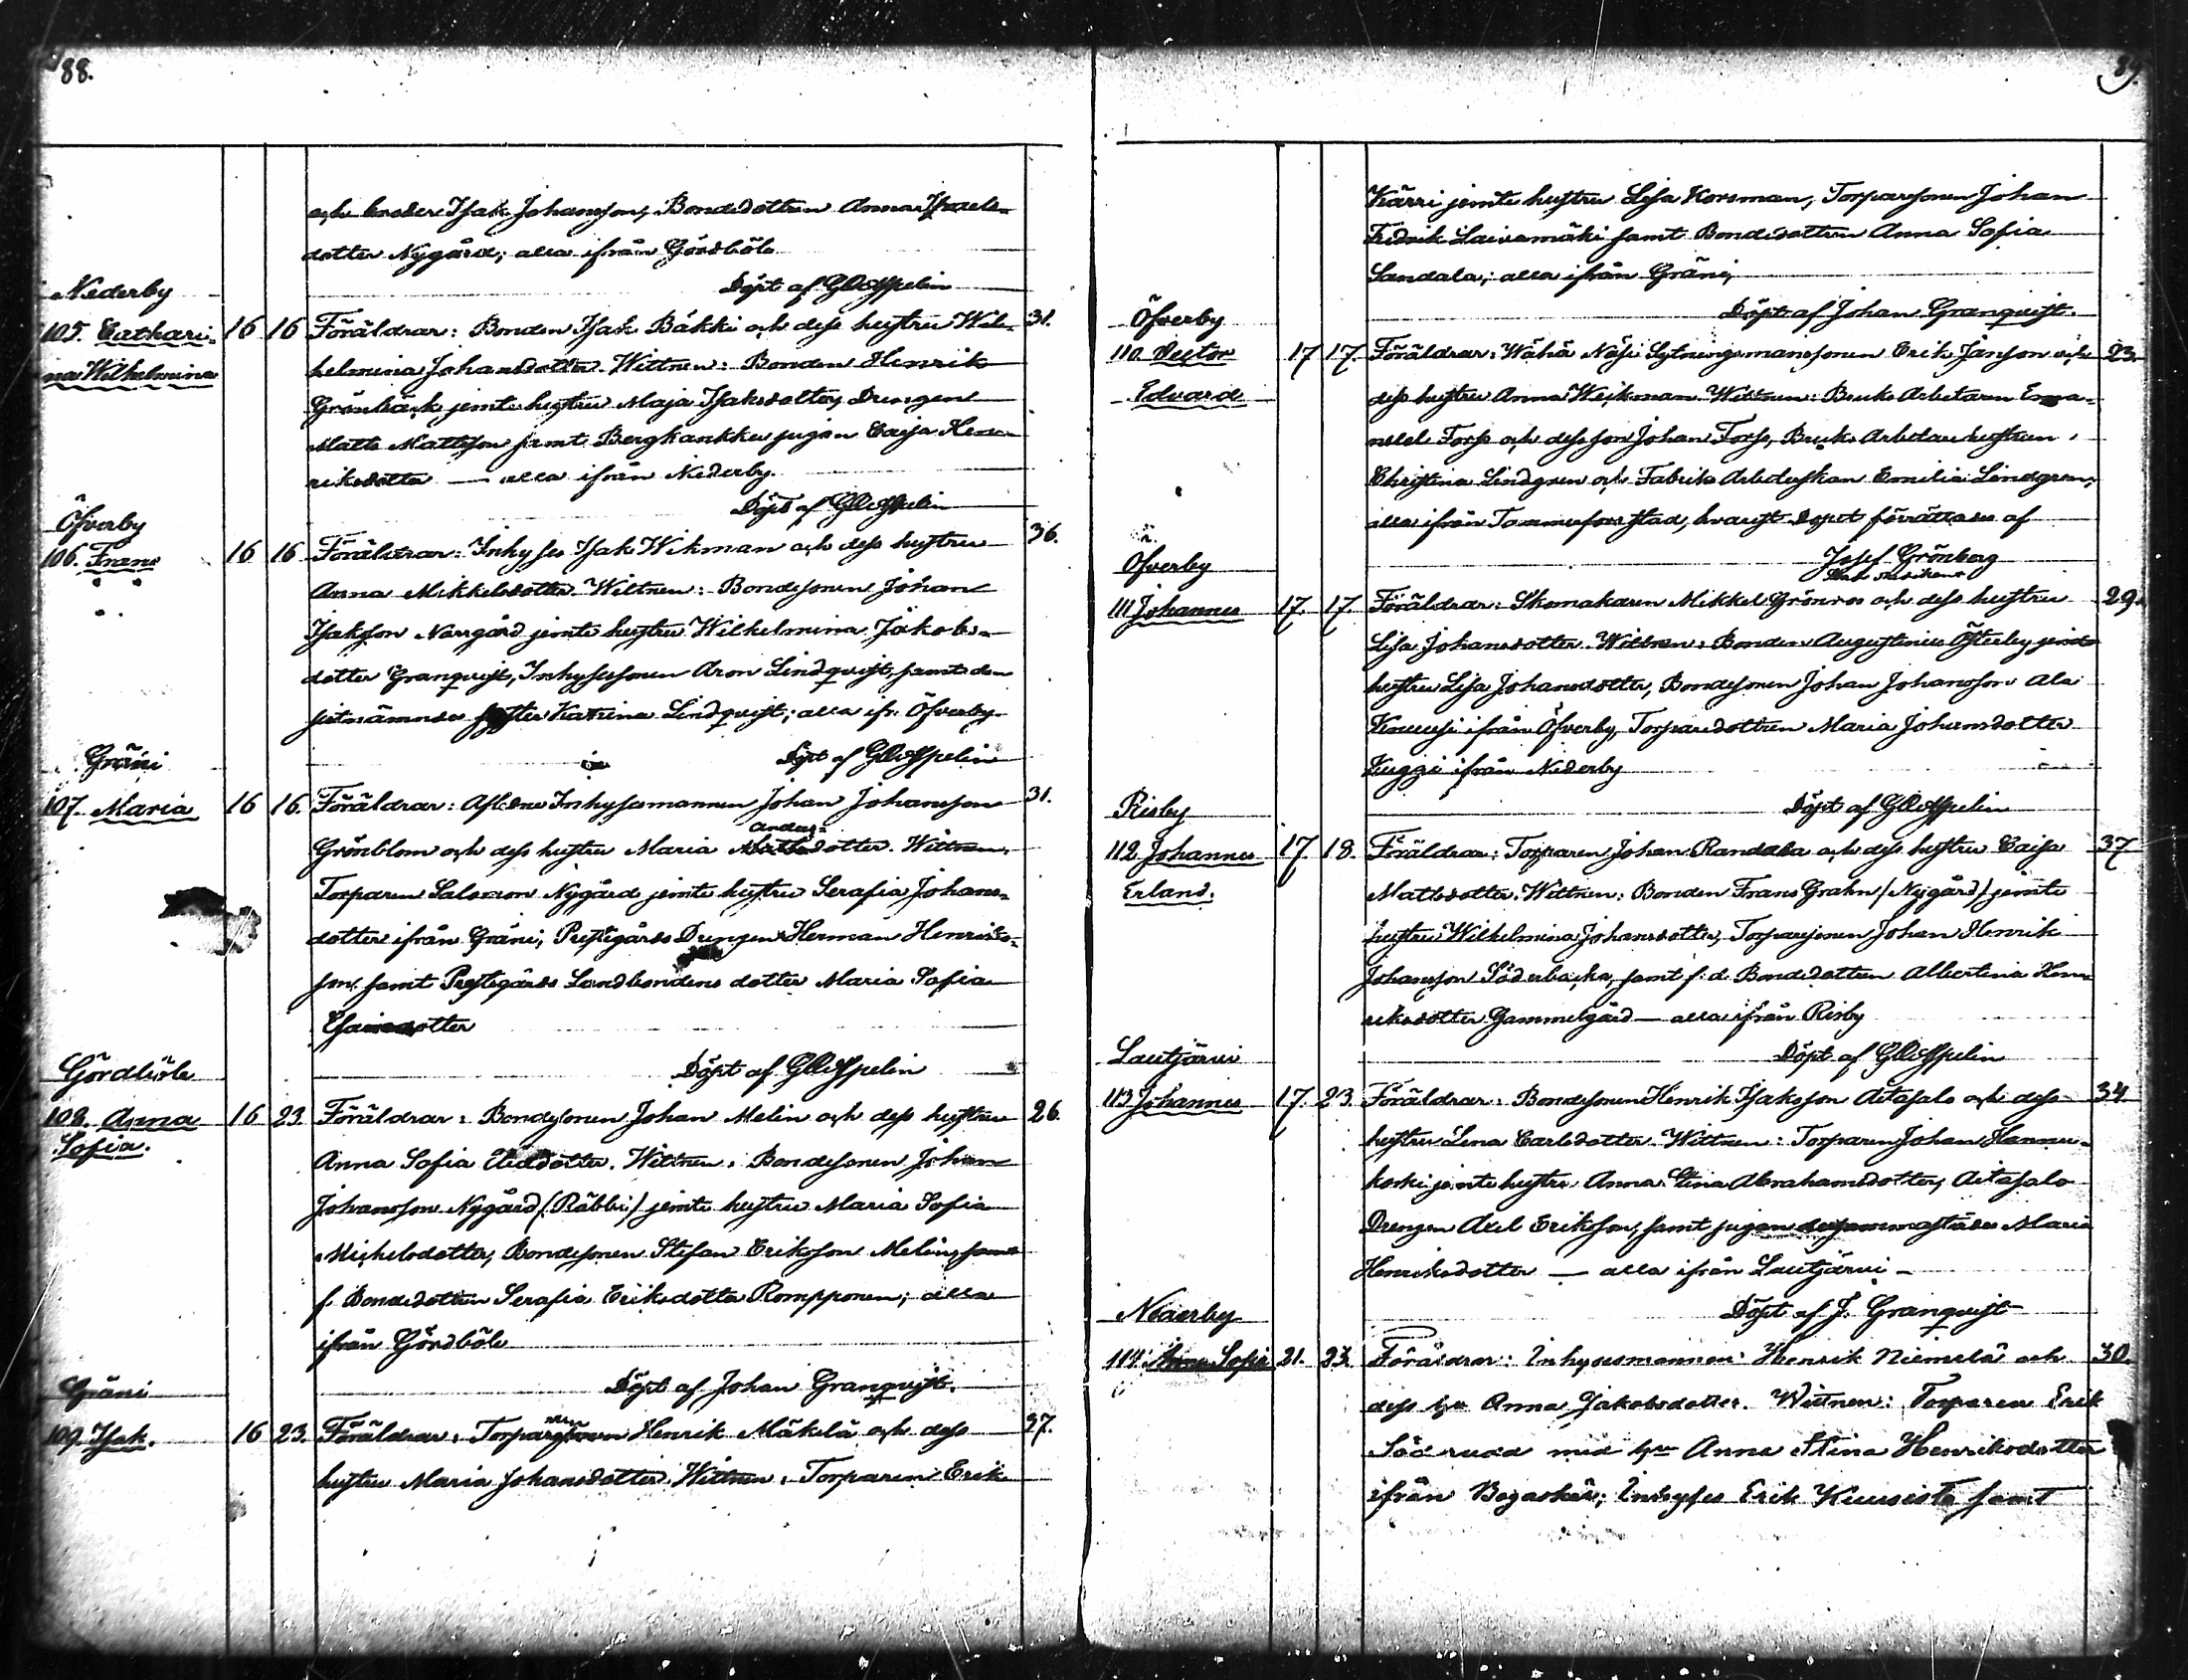 88.
och broder Isak Johansson, Bondedottren Anna Isaels-
dotter Nygård; alla ifrån Gördböle
Döpt af
Nederby
105. Cathari- 16 16 Föräldrar: Bonden Isak Bäkki och dess hustru Wil- 31.
na Wilhelmina helmina Johansdotter. Wittnen: Bonden Henrik
Grönbäck jemte hustru Maja Isaksdotter, Drengen
Matts Mattsson samt Bergkankka pigan Caisa Hen-
riksdotter — alla ifrån Nederby.
Döpt af
Öfverby
106. Frans 16 16 Föräldrar: Inhyses Isak Wikman och dess hustru 36.
Anna Mikkelsdotter. Wittnen: Bondesonen Johan
Isaksson Norrgård jemte hustru Wilhelmina Jakobs-
dotter Granqvist, Inhysessonen Aron Lindqvist, samt den
sistnämndes syster Katrina Lindqvist; alla ifr. Öfverby
Döpt af
Gräni
107. Maria 16 16. Föräldrar: Afledne Inhysesmannen Johan Johansson 31.
Grönblom och dess hustru Maria Andersdotter. Wittnen,
Torparen Salomon Nygård jemte hustru Serafia Johans-
dotter ifrån Gräni; Prestgårds Drengen Herman Henriks-
son, samt Prestegårds Landbondens dotter Maria Sofia
Esaiasdotter
Gördböle
Döpt af
108. Anna 16 23. Föräldrar: Bondesonen Johan Melin och dess hustru 26.
Sofia.
Anna Sofia Eliedotter. Wittnen: Bondesonen Johan
Johansson Nygård (Räbbi) jemte hustru Maria Sofia
Michelsdotter, Bondesonen Stefan Eriksson Melin, samt
f. Bondedottren Serafia Eriksdotter Rompponen; alla
ifrån Gördböle
Gräni
Döpt af Johan Granqvist.
109. Isak. 16 23. Föräldrar: Henrik Mäkelä och dess 37.
hustru Maria Johansdotter. Wittnen: Torparen Erik
89.
Kärri jemte hustru Lisa Korsman, Torparsonen Johan
Fredrik Laivamäki samt Bondedottren Anna Sofia
Sandala; alla ifrån Gräni;
Döpt af Johan Granqvist.
Öfverby
110. Victor 17 17. Föräldrar: Wähä Näsi Sytningsmanssonen Erik Janson och 23.
Edvard
dess hustru Anna Weikman. Wittnen: Bruks Arbetaren Ema-
nuel Forss och dess son Johan Forss, Bruks Arbetarhustrun
Christina Lindgren och Fabriks Arbeterskan Emilia Lindgren;
alla ifrån Tammerfors stad, hvarest Dopet förrättades af
Josef Grönberg
Öfverby
111 Johannes 17. 17. Föräldrar: Skomakaren Mikkel Grönroos och dess hustru 29.
Lisa Johansdotter. Wittnen: Bonden Augustinus Österby jemte
hustru Lisa Johansdotter, Bondesonen Johan Johansson Ala
ifrån Öfverby, Torparedottren Maria Johansdotter
Kuggi ifrån Nederby
Risby
Döpt af
112 Johannes 17. 18. Föräldrar: Torparen Johan Randala och dess hustru Caisa 37
Erland.
Mattsdotter. Wittnen: Bonden Frans Grahn (Nygård) jemte
hustru Wilhelmina Johansdotter, Torparsonen Johan Henrik
Johansson Söderbacka, samt f. d. Bondedottren Albertina Hen-
riksdotter Gammelgård — alla ifrån Risby
Lautjärvi
Döpt af
113 Johannes 17. 23. Föräldrar: Bondesonen Henrik Isaksson Aitasalo och dess 34
hustru Lena Carlsdotter. Wittnen: Torparen Johan Hannu-
koski jemte hustru Anna Stina Abrahamsdotter, Aitasalo
Drengen Axel Eriksson, samt pigan dersammastädes Maria
Henriksdotter — alla ifrån Lautjärvi –
Döpt af J. Granqvist
Nederby
114. Anna Sofia 21. 23. Föräldrar: Inhysesmannen Henrik Niemelä och 30.
dess hu Anna Jakobsdotter. Wittnen: Torparen Erik
Söd rudd med hu Anna Stina Henriksdotter
ifrån Bogaskär; Inhyses Erik Kuusisto samt